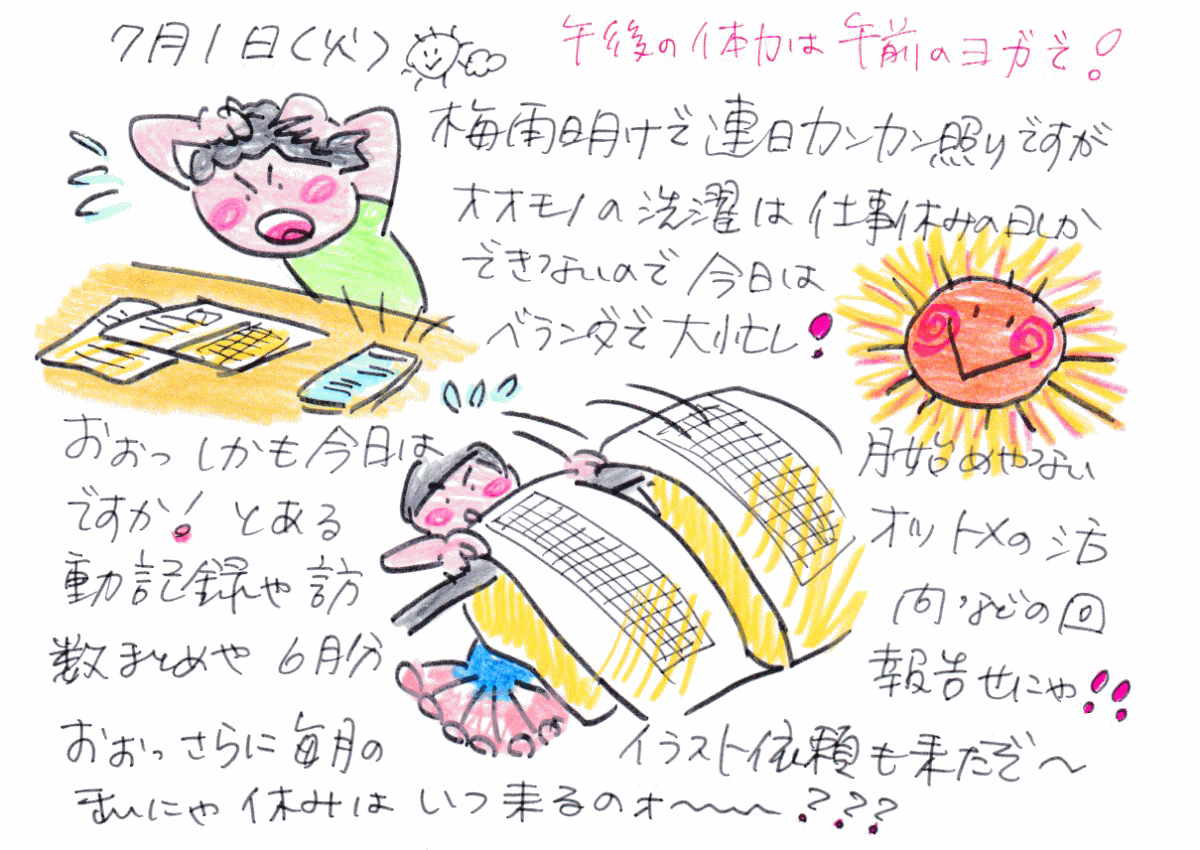 7月1日(火)
午後の体力は午前のヨガで!
梅雨明けで連日カンカン照りですが
オオモノの洗濯は仕事休みの日しか
できないので今日は
ベランダで大忙し!
おぉっしかも今日は 月始めやない
ですか! とある オットメの活
動記録や訪 問などの回
数まとめや6月分 報告せにゃ!!
おぉっさらに毎月の イラスト依頼も来たぞ~
まぃにゃ休みはいつ来るのォ~~~???